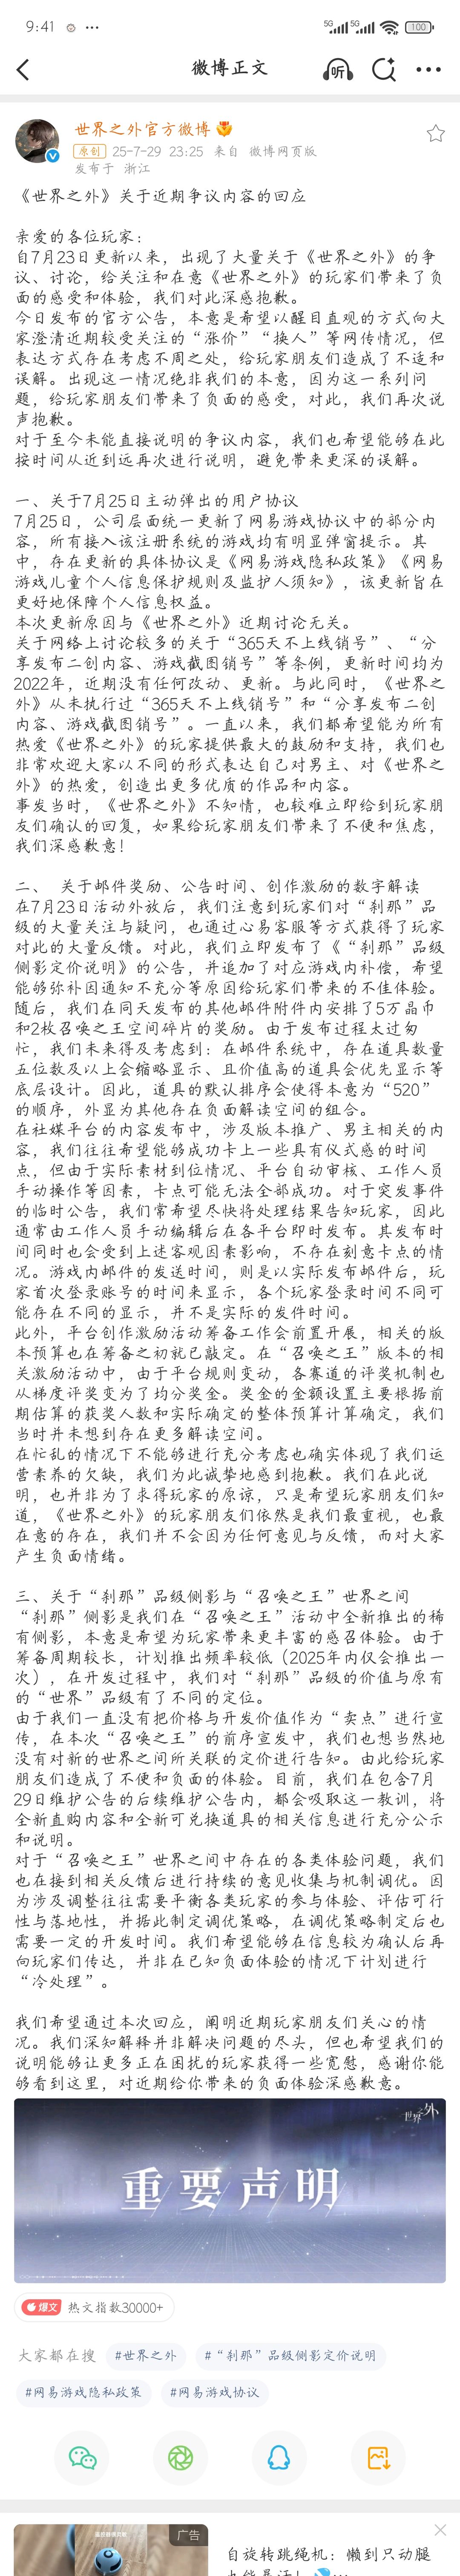 9:41
5G 5G 100
微博正文
听
世界之外官方微博
原创 25-7-29 23:25 来自 微博网页版
发布于 浙江
《世界之外》关于近期争议内容的回应
亲爱的各位玩家：
自7月23日更新以来，出现了大量关于《世界之外》的争
议、讨论，给关注和在意《世界之外》的玩家们带来了负
面的感受和体验，我们对此深感抱歉。
今日发布的官方公告，本意是希望以醒目直观的方式向大
家澄清近期较受关注的“涨价”“换人”等网传情况，但
表达方式存在考虑不周之处，给玩家朋友们造成了不适和
误解。出现这一情况绝非我们的本意，因为这一系列问
题，给玩家朋友们带来了负面的感受，对此，我们再次说
声抱歉。
对于至今未能直接说明的争议内容，我们也希望能够在此
按时间从近到远再次进行说明，避免带来更深的误解。
一、关于7月25日主动弹出的用户协议
7月25日，公司层面统一更新了网易游戏协议中的部分内
容，所有接入该注册系统的游戏均有明显弹窗提示。其
中，存在更新的具体协议是《网易游戏隐私政策》《网易
游戏儿童个人信息保护规则及监护人须知》，该更新旨在
更好地保障个人信息权益。
本次更新原因与《世界之外》近期讨论无关。
关于网络上讨论较多的关于“365天不上线销号”、“分
享发布二创内容、游戏截图销号”等条例，更新时间均为
2022年，近期没有任何改动、更新。与此同时，《世界之
外》从未执行过“365天不上线销号”和“分享发布二创
内容、游戏截图销号”。一直以来，我们都希望能为所有
热爱《世界之外》的玩家提供最大的鼓励和支持，我们也
非常欢迎大家以不同的形式表达自己对男主、对《世界之
外》的热爱，创造出更多优质的作品和内容。
事发当时，《世界之外》不知情，也较难立即给到玩家朋
友们确认的回复，如果给玩家朋友们带来了不便和焦虑，
我们深感歉意！
二、 关于邮件奖励、公告时间、创作激励的数字解读
在7月23日活动外放后，我们注意到玩家们对“刹那”品
级的大量关注与疑问，也通过心易客服等方式获得了玩家
对此的大量反馈。对此，我们立即发布了《“刹那”品级
侧影定价说明》的公告，并追加了对应游戏内补偿，希望
能够弥补因通知不充分等原因给玩家们带来的不佳体验。
随后，我们在同天发布的其他邮件附件内安排了5万晶币
和2枚召唤之王空间碎片的奖励。由于发布过程太过匆
忙，我们未来得及考虑到：在邮件系统中，存在道具数量
五位数及以上会缩略显示、且价值高的道具会优先显示等
底层设计。因此，道具的默认排序会使得本意为“520”
的顺序，外显为其他存在负面解读空间的组合。
在社媒平台的内容发布中，涉及版本推广、男主相关的内
容，我们往往希望能够成功卡上一些具有仪式感的时间
点，但由于实际素材到位情况、平台自动审核、工作人员
手动操作等因素，卡点可能无法全部成功。对于突发事件
的临时公告，我们常希望尽快将处理结果告知玩家，因此
通常由工作人员手动编辑后在各平台即时发布。其发布时
间同时也会受到上述客观因素影响，不存在刻意卡点的情
况。游戏内邮件的发送时间，则是以实际发布邮件后，玩
家首次登录账号的时间来显示，各个玩家登录时间不同可
能存在不同的显示，并不是实际的发件时间。
此外，平台创作激励活动筹备工作会前置开展，相关的版
本预算也在筹备之初就已敲定。在“召唤之王”版本的相
关激励活动中，由于平台规则变动，各赛道的评奖机制也
从梯度评奖变为了均分奖金。奖金的金额设置主要根据前
期估算的获奖人数和实际确定的整体预算计算确定，我们
当时并未想到存在更多解读空间。
在忙乱的情况下不能够进行充分考虑也确实体现了我们运
营素养的欠缺，我们为此诚挚地感到抱歉。我们在此说
明，也并非为了求得玩家的原谅，只是希望玩家朋友们知
道，《世界之外》的玩家朋友们依然是我们最重视，也最
在意的存在，我们并不会因为任何意见与反馈，而对大家
产生负面情绪。
三、关于“刹那”品级侧影与“召唤之王”世界之间
“刹那”侧影是我们在“召唤之王”活动中全新推出的稀
有侧影，本意是希望为玩家带来更丰富的感召体验。由于
筹备周期较长，计划推出频率较低（2025年内仅会推出一
次），在开发过程中，我们对“刹那”品级的价值与原有
的“世界”品级有了不同的定位。
由于我们一直没有把价格与开发价值作为“卖点”进行宣
传，在本次“召唤之王”的前序宣发中，我们也想当然地
没有对新的世界之间所关联的定价进行告知。由此给玩家
朋友们造成了不便和负面的体验。目前，我们在包含7月
29日维护公告的后续维护公告内，都会吸取这一教训，将
全新直购内容和全新可兑换道具的相关信息进行充分公示
和说明。
对于“召唤之王”世界之间中存在的各类体验问题，我们
也在接到相关反馈后进行持续的意见收集与机制调优。因
为涉及调整往往需要平衡各类玩家的参与体验、评估可行
性与落地性，并据此制定调优策略，在调优策略制定后也
需要一定的开发时间。我们希望能够在信息较为确认后再
向玩家们传达，并非在已知负面体验的情况下计划进行
“冷处理”。
我们希望通过本次回应，阐明近期玩家朋友们关心的情
况。我们深知解释并非解决问题的尽头，但也希望我们的
说明能够让更多正在困扰的玩家获得一些宽慰，感谢你能
够看到这里，对近期给你带来的负面体验深感歉意。
世界之外
重要声明
爆文 热文指数30000+
大家都在搜 #世界之外 #“刹那”品级侧影定价说明
#网易游戏隐私政策 #网易游戏协议
广告
自旋转跳绳机：懒到只动腿